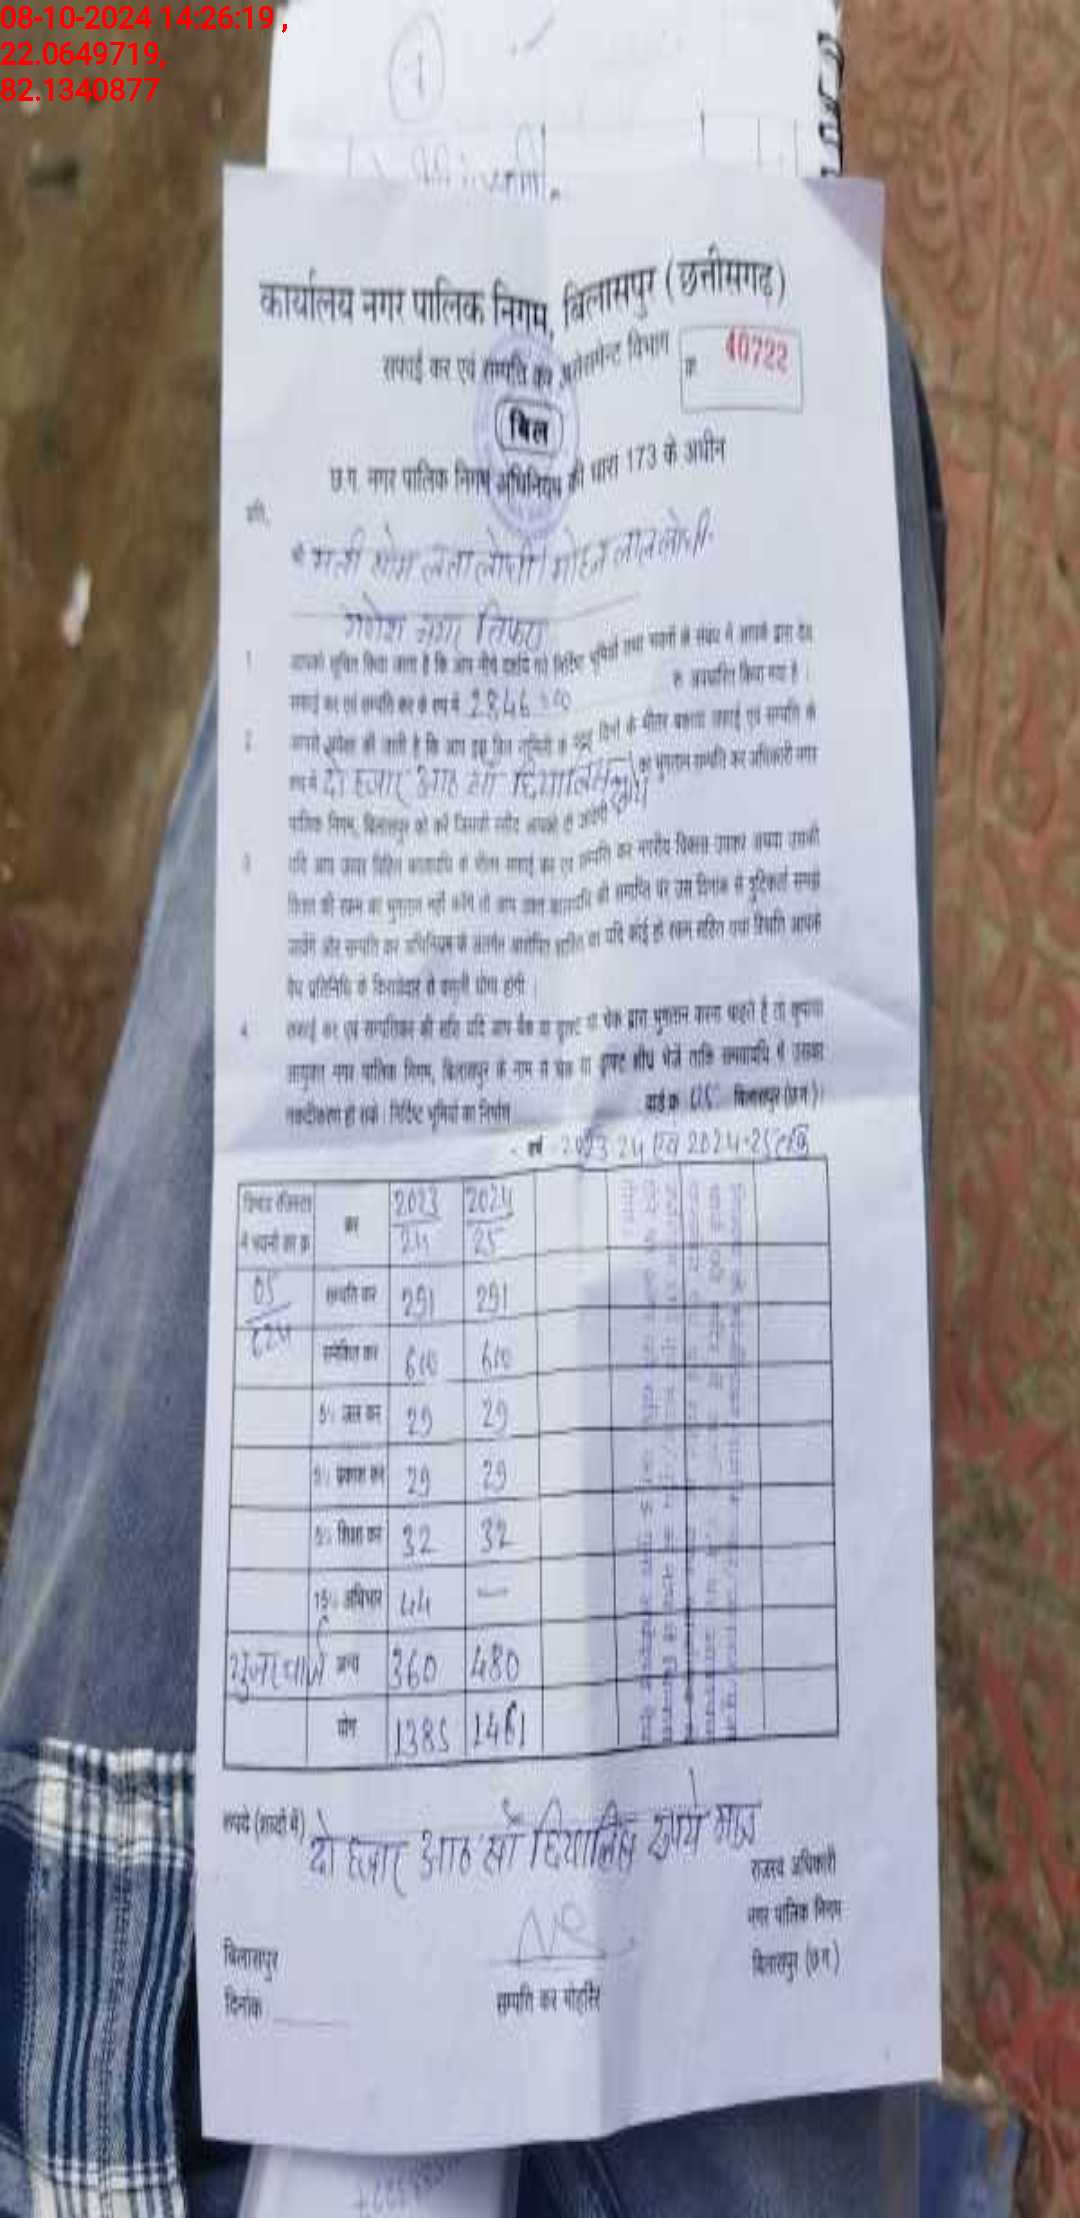 08-10-2024 14:26:19 ,
22.0649719,
82.1340877
1
कार्यालय नगर पालिक निगम, बिलासपुर (छत्तीसगढ़)
सफाई कर एवं सम्पत्ति कर असेसमेन्ट विभाग
क्र 40722
बिल
छ.ग. नगर पालिक निगम अधिनियम की धारा 173 के अधीन
प्रति,
गणेश नगर तिफरा
1 आपको सूचित किया जाता है कि आप नीचे दर्शाये गये निर्दिष्ट भूमियों तथा भवनों के संबंध में आपके द्वारा देय
सफाई कर एवं सम्पत्ति कर के रूप में 2846=00 रु. अवधारित किया गया है।
2 आपसे अपेक्षा की जाती है कि आप इस बिल तामिली के पंद्रह दिनों के भीतर बकाया सफाई एवं सम्पत्ति के
रूप में दो हजार आठ सौ छियालिस रूपये का भुगतान सम्पत्ति कर अधिकारी नगर
पालिक निगम, बिलासपुर को करें जिसकी रसीद आपको दी जावेगी
3 यदि आप उक्त विहित कालावधि के भीतर सफाई कर एवं सम्पत्ति कर नगरीय विकास उपकर अथवा उसकी
किश्त की रकम का भुगतान नहीं करेंगे तो आप उक्त कालावधि की समाप्ति पर उस दिनांक से त्रुटिकर्ता समझे
जावेंगे और सम्पत्ति कर अधिनियम के अंतर्गत आरोपित शास्ति या यदि कोई हो रकम सहित यथा स्थिति आपके
वैध प्रतिनिधि के किरायेदार से वसूली योग्य होगी।
4 सफाई कर एवं सम्पत्तिकर की राशि यदि आप बैंक या ड्राफ्ट या चेक द्वारा भुगतान करना चाहते है तो कृपया
आयुक्त नगर पालिक निगम, बिलासपुर के नाम से चेक या ड्राफ्ट सीधे भेजें ताकि समयावधि में उसका
नकदीकरण हो सके। निर्दिष्ट भूमियों का निर्धारण वार्ड क्र. 05 बिलासपुर (छ.ग.)।
वर्ष 2023 24 एवं 2024-25
डिमांड रजिस्टर में भवनों का क्र. कर 2023/24 2024/25
05/624 सम्पत्ति कर 291 291
समेकित कर 600 600
5% जल कर 29 29
5% प्रकाश कर 29 29
5% शिक्षा कर 32 32
15% अधिभार 44 —
यूजर चार्ज अन्य 360 480
योग 1385 1461
रूपये (शब्दों में) दो हजार आठ सौ छियालिस रूपये मात्र
राजस्व अधिकारी
नगर पालिक निगम
बिलासपुर (छ.ग.)
बिलासपुर
दिनांक
सम्पत्ति कर मोहर्रिर